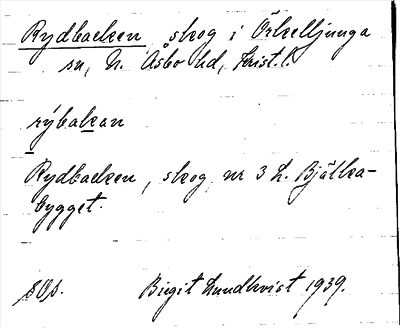 Rydbacken, skog i Örkelljunga
sn, N. Åsbo hd, Krist.l.
rýbakan
Rydbacken, skog nr 3 L. Bjälka-
bygget.
Birgit Lundkvist 1939.